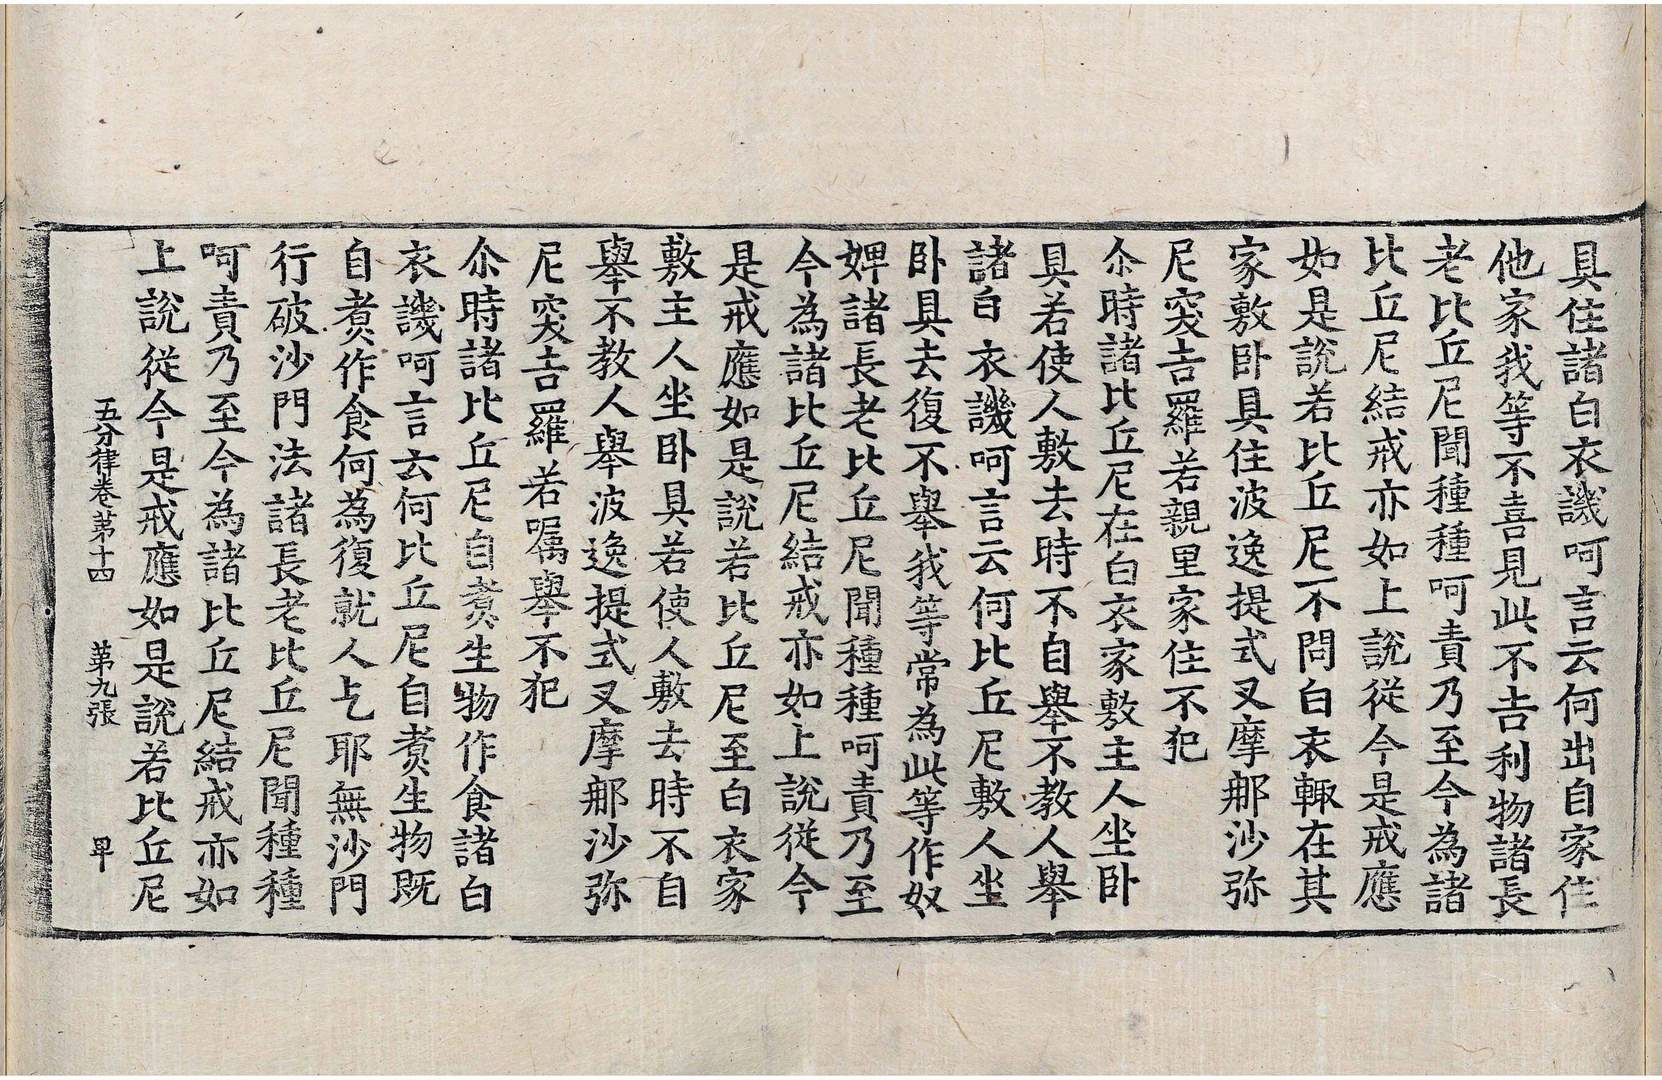 具住諸白衣譏呵言云何出自家住
他家我等不喜見此不吉利物諸長
老比丘尼聞種種呵責乃至今為諸
比丘尼結戒亦如上說從今是戒應
如是說若比丘尼不問白衣輙在其
家敷卧具住波逸提式叉摩那沙弥
尼突吉羅若親里家住不犯
尒時諸比丘尼在白衣家敷主人坐卧
具若使人敷去時不自舉不教人舉
諸白衣譏呵言云何比丘尼敷人坐
卧具去復不舉我等常為此等作奴
婢諸長老比丘尼聞種種呵責乃至
今為諸比丘尼結戒亦如上說從今
是戒應如是說若比丘尼至白衣家
敷主人坐卧具若使人敷去時不自
舉不教人舉波逸提式叉摩那沙弥
尼突吉羅若囑舉不犯
尒時諸比丘尼自煑生物作食諸白
衣譏呵言云何比丘尼自煑生物既
自煑作食何為復就人乞耶無沙門
行破沙門法諸長老比丘尼聞種種
呵責乃至今為諸比丘尼結戒亦如
上說從今是戒應如是說若比丘尼
五分律卷第十四 第九張 卑